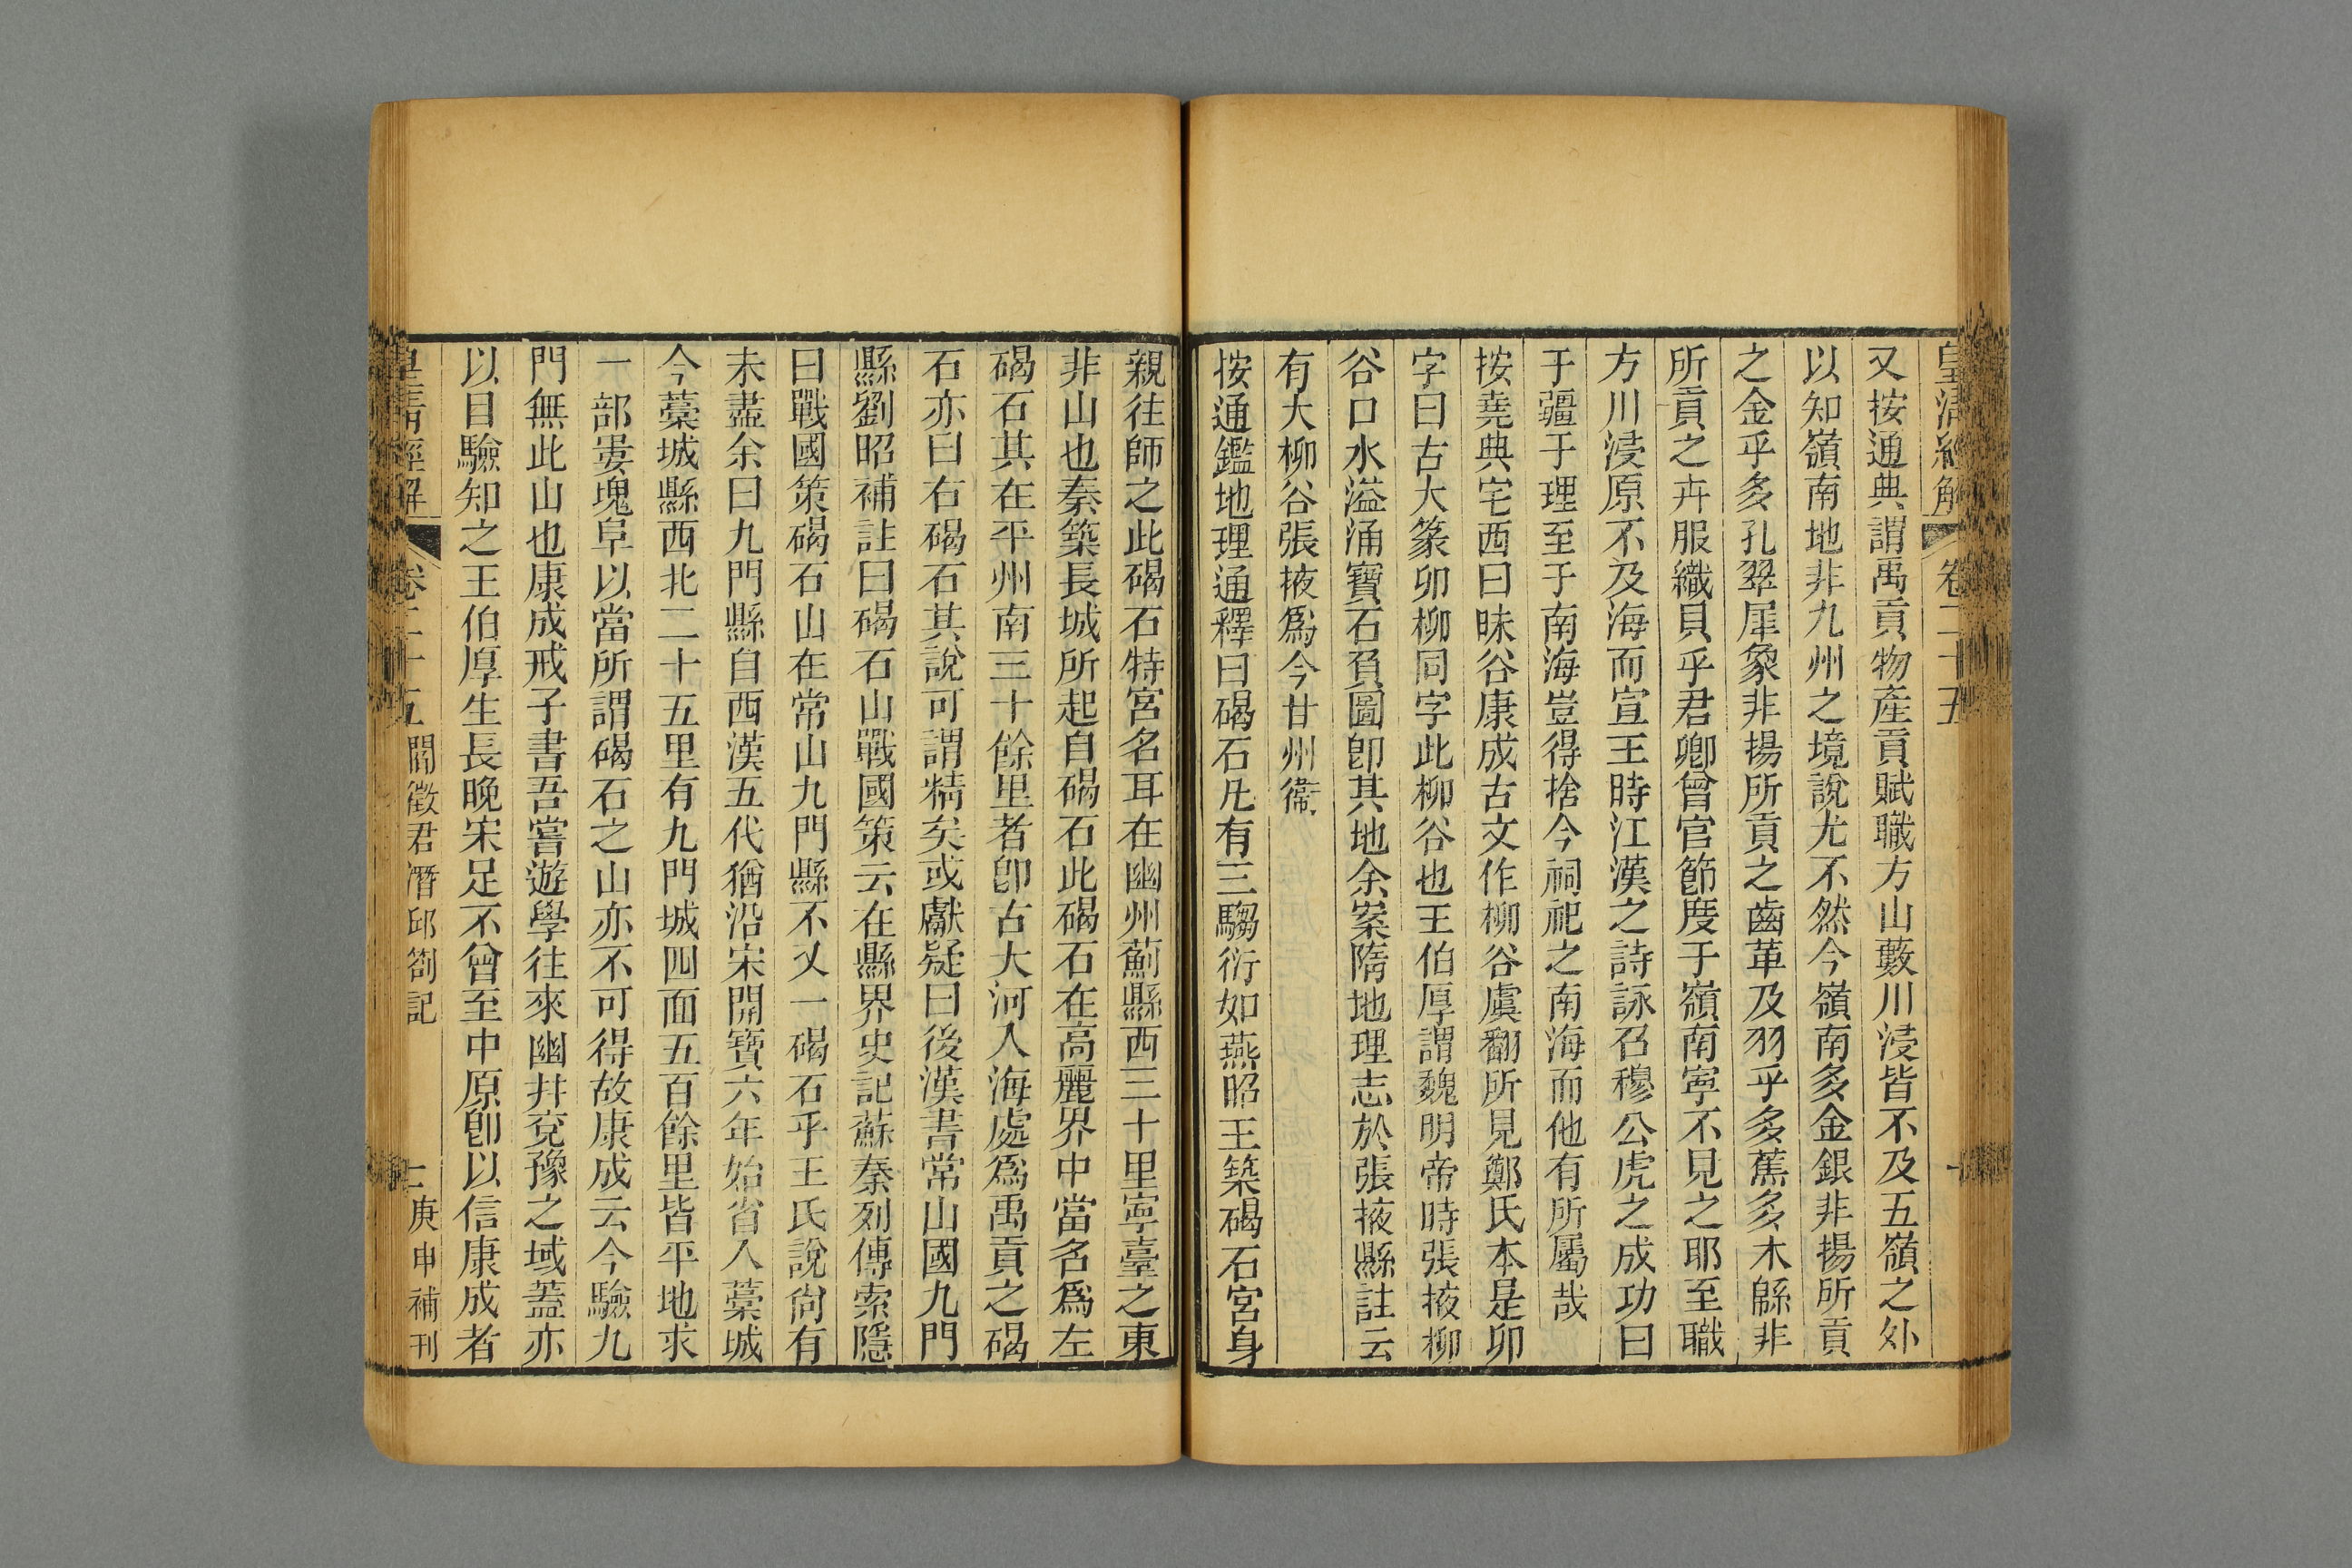 皇清經解
卷二十五
又按通典謂禹貢物產貢賦職方山藪川浸皆不及五嶺之外
以知嶺南地非九州之境說尤不然今嶺南多金銀非揚所貢
之金乎多孔翠犀象非揚所貢之齒革及羽乎多蕉多木緜非
所貢之卉服織貝乎君卿曾官節度于嶺南寧不見之耶至職
方川浸原不及海而宣王時江漢之詩詠召穆公虎之成功曰
于疆于理至于南海豈得捨今祠祀之南海而他有所屬哉
按堯典宅西曰昧谷康成古文作柳谷虞翻所見鄭氏本是卯
字曰古大篆卯柳同字此柳谷也王伯厚謂魏明帝時張掖柳
谷口水溢涌寶石負圖卽其地余案隋地理志於張掖縣註云
有大柳谷張掖爲今甘州衞
按通鑑地理通釋曰碣石凡有三騶衍如燕昭王築碣石宮身
親往師之此碣石特宮名耳在幽州薊縣西三十里寧臺之東
非山也秦築長城所起自碣石此碣石在高麗界中當名爲左
碣石其在平州南三十餘里者卽古大河入海處爲禹貢之碣
石亦曰右碣石其說可謂精矣或獻疑曰後漢書常山國九門
縣劉昭補註曰碣石山戰國策云在縣界史記蘇秦列傳索隱
曰戰國策碣石山在常山九門縣不又一碣石乎王氏說尙有
未盡余曰九門縣自西漢五代猶沿宋開寶六年始省入藁城
今藁城縣西北二十五里有九門城四面五百餘里皆平地求
一部婁塊阜以當所謂碣石之山亦不可得故康成云今驗九
門無此山也康成戒子書吾嘗遊學往來幽幷兗豫之域蓋亦
以目驗知之王伯厚生長晚宋足不曾至中原卽以信康成者
皇清經解
卷二十五
閻徵君潛邱劄記
二
庚申補刊